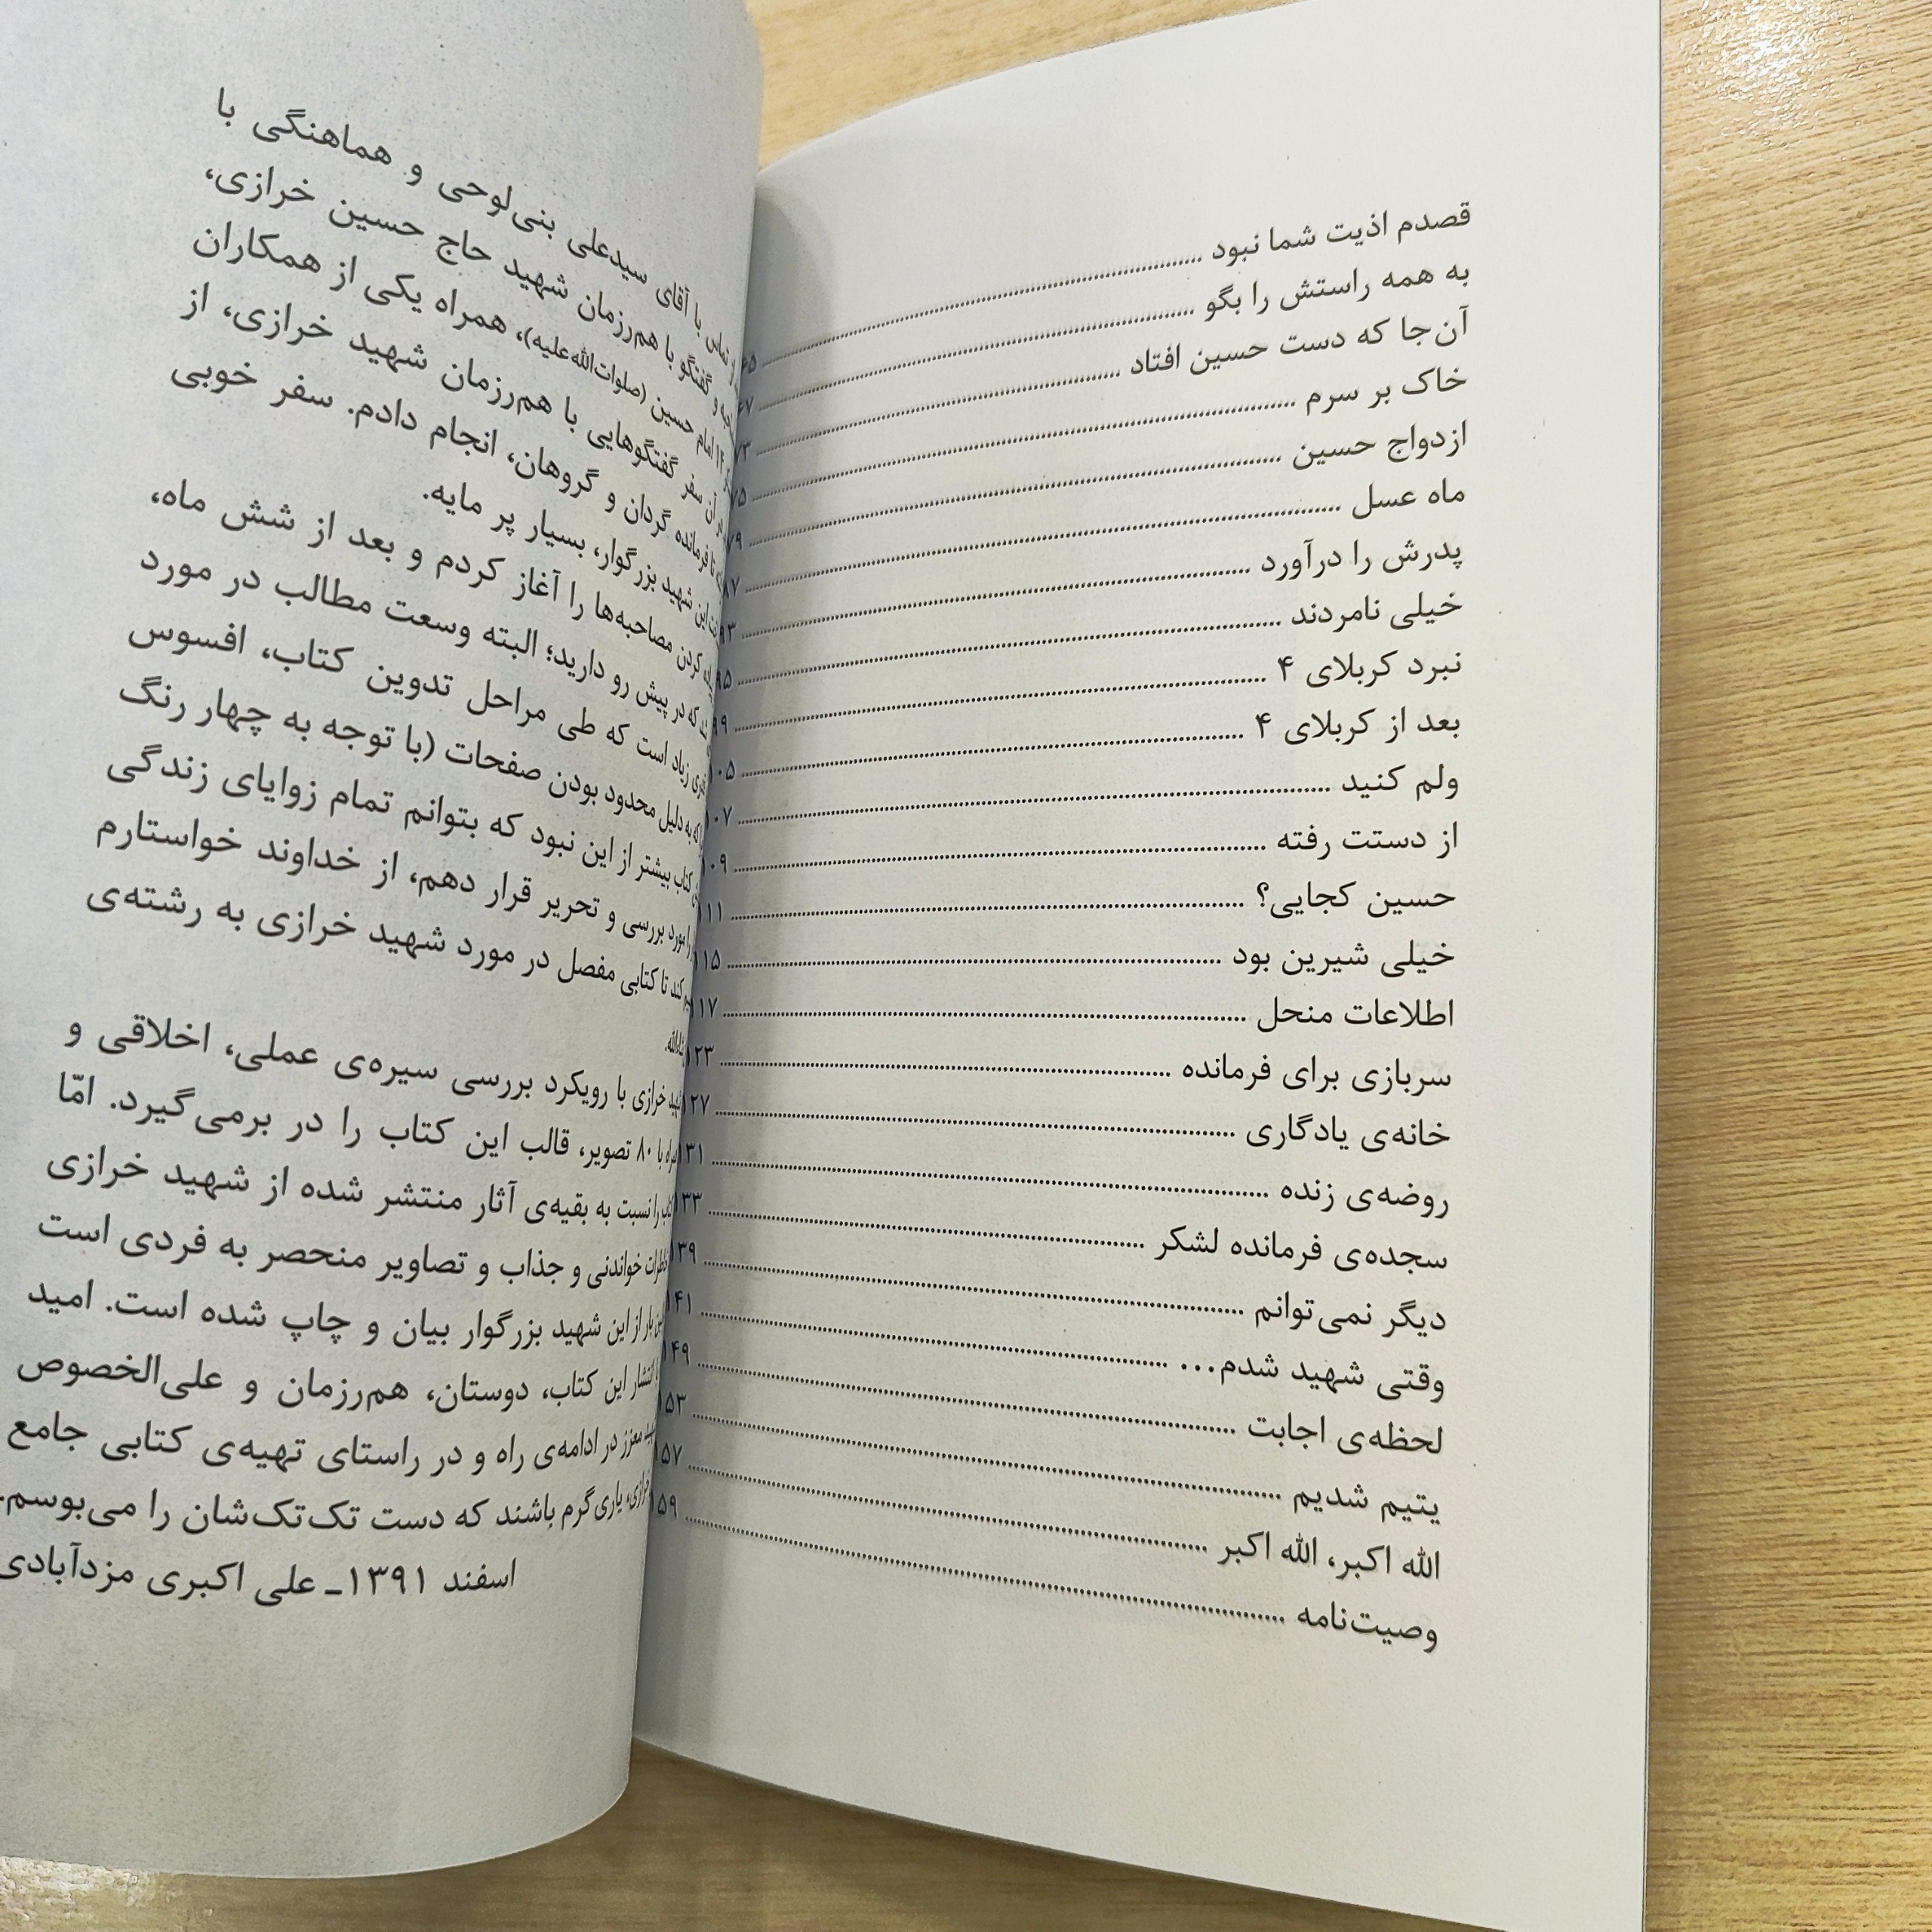 قصدم اذیت شما نبود ........ ۶۵
به همه راستش را بگو ........ ۶۷
آن‌جا که دست حسین افتاد ........ ۷۳
خاک بر سرم ........ ۷۵
ازدواج حسین ........ ۷۹
ماه عسل ........ ۸۷
پدرش را درآورد ........ ۹۳
خیلی نامردند ........ ۹۵
نبرد کربلای ۴ ........ ۹۹
بعد از کربلای ۴ ........ ۱۰۵
ولم کنید ........ ۱۰۷
از دستت رفته ........ ۱۰۹
حسین کجایی؟ ........ ۱۱۱
خیلی شیرین بود ........ ۱۱۵
اطلاعات منحل ........ ۱۱۷
سربازی برای فرمانده ........ ۱۲۳
خانه‌ی یادگاری ........ ۱۲۷
روضه‌ی زنده ........ ۱۳۱
سجده‌ی فرمانده لشکر ........ ۱۳۳
دیگر نمی‌توانم ........ ۱۳۹
وقتی شهید شدم... ........ ۱۴۱
لحظه‌ی اجابت ........ ۱۴۹
یتیم شدیم ........ ۱۵۳
الله اکبر، الله اکبر ........ ۱۵۷
وصیت‌نامه ........ ۱۵۹
تماس با آقای سیدعلی بنی‌لوحی و هماهنگی با
و گفتگو با هم‌رزمان شهید حاج حسین خرازی،
۱۴ امام حسین (صلوات‌الله‌علیه)، همراه یکی از همکاران
آن سفر گفتگوهایی با هم‌رزمان شهید خرازی، از
تا فرمانده گردان و گروهان، انجام دادم. سفر خوبی
این شهید بزرگوار، بسیار پر مایه.
کردن مصاحبه‌ها را آغاز کردم و بعد از شش ماه،
که در پیش رو دارید؛ البته وسعت مطالب در مورد
زیاد است که طی مراحل تدوین کتاب، افسوس
که به دلیل محدود بودن صفحات (با توجه به چهار رنگ
کتاب بیشتر از این نبود که بتوانم تمام زوایای زندگی
را مورد بررسی و تحریر قرار دهم، از خداوند خواستارم
کند تا کتابی مفصل در مورد شهید خرازی به رشته‌ی
خرازی با رویکرد بررسی سیره‌ی عملی، اخلاقی و
با ۸۰ تصویر، قالب این کتاب را در برمی‌گیرد. امّا
را نسبت به بقیه‌ی آثار منتشر شده از شهید خرازی
خواندنی و جذاب و تصاویر منحصر به فردی است
بار از این شهید بزرگوار بیان و چاپ شده است. امید
انتشار این کتاب، دوستان، هم‌رزمان و علی‌الخصوص
معزز در ادامه‌ی راه و در راستای تهیه‌ی کتابی جامع
خرازی، یاری‌گرم باشند که دست تک‌تک‌شان را می‌بوسم.
اسفند ۱۳۹۱ـ علی اکبری مزدآبادی